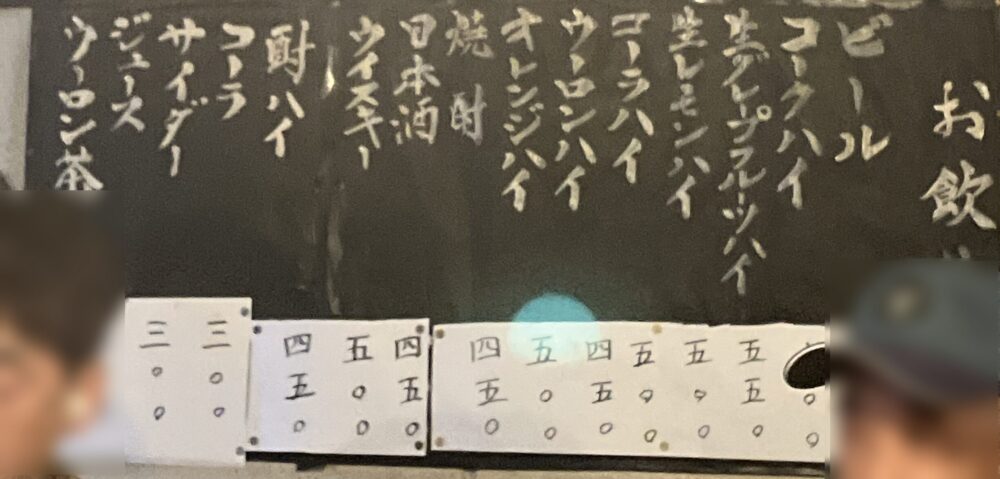 お飲
ビール
コークハイ
生グレープフルーツハイ
生レモンハイ
コーラハイ
ウーロンハイ
オレンジハイ
焼酎
日本酒
ウイスキー
酎ハイ
コーラ
サイダー
ジュース
ウーロン茶
○○
五五○
五○○
五○○
四五○
五○○
四五○
四五○
五○○
四五○
三○○
三○○